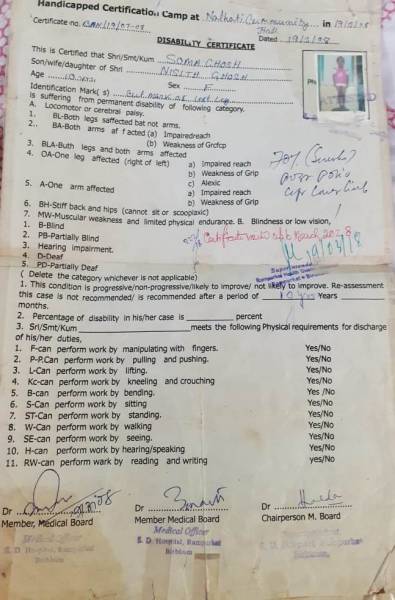 Handicapped Certification Camp at Nalhati Community in 19/3/08
Hall
Certificate no. BRM/19/07-08 Dated 19/3/08
DISABILITY CERTIFICATE
This is Certified that Shri/Smt/Kum SOMA GHOSH
Son/wife/daughter of Shri NISITH GHOSH
Age 10 yrs Sex F
Identification Mark( s) Cut mark of left leg
is suffering from permanent disability of following category.
A. Locomotor or cerebral palsy.
1. BL-Both legs saffected bat not arms.
2.. BA-Both arms af f acted (a) Impairedreach
b) Weakness of Grofcp
3. BLA-Buth legs and both arms affected
4. OA-One leg affected (right of left) a) Impaired reach
b) Weakness of Grip
c) Alexic
5. A-One arm affected a) Impaired reach
b) Weakness of Grip
70% (Seventy)
Post Polio
6. BH-Stiff back and hips (cannot sit or scooplaxic)
7. MW-Muscular weakness and limited physical endurance. B. Blindness or low vision,
1. B-Blind
2. PB-Partially Blind
3. Hearing impairment.
4. D-Deaf
5. PD-Partially Deaf
Certificate valid upto March 2018
19/03/18
Superintendent
( Delete the category whichever is not applicable)
1. This condition is progressive/non-progressive/likely to improve/ not likely to improve. Re-assessment
this case is not recommended/ is recommended after a period of 10 yrs Years
months.
2. Percentage of disability in his/her case is percent
3. Srl/Smt/Kum meets the following Physical requirements for discharge
of his/her duties,
1. F-can perform work by manipulating with fingers. Yes/No
2. P-P.Can perform work by pulling and pushing. Yes/No
3. L-Can perform work by lifting. Yes/No
4. Kc-can perform work by kneeling and crouching Yes/No
5. B-can perform work by bending. Yes /No
6. S-Can perform work by sitting Yes/No
7. ST-Can perform work by standing. Yes/No
8. W-Can perform work by walking Yes/No
9. SE-can perform work by seeing. Yes/No
10. H-can perform work by hearing/speaking Yes/No
11. RW-can perform wark by reading and writing yes/No
19/3/08
Dr Dr Dr
Member, Medical Board Member Medical Board Chairperson M. Board
Medical Officer Medical Officer
S. D. Hospital, Rampurhat S. D. Hospital, Rampurhat S. D. Hospital Rampurhat
Birbhum Birbhum Birbhum